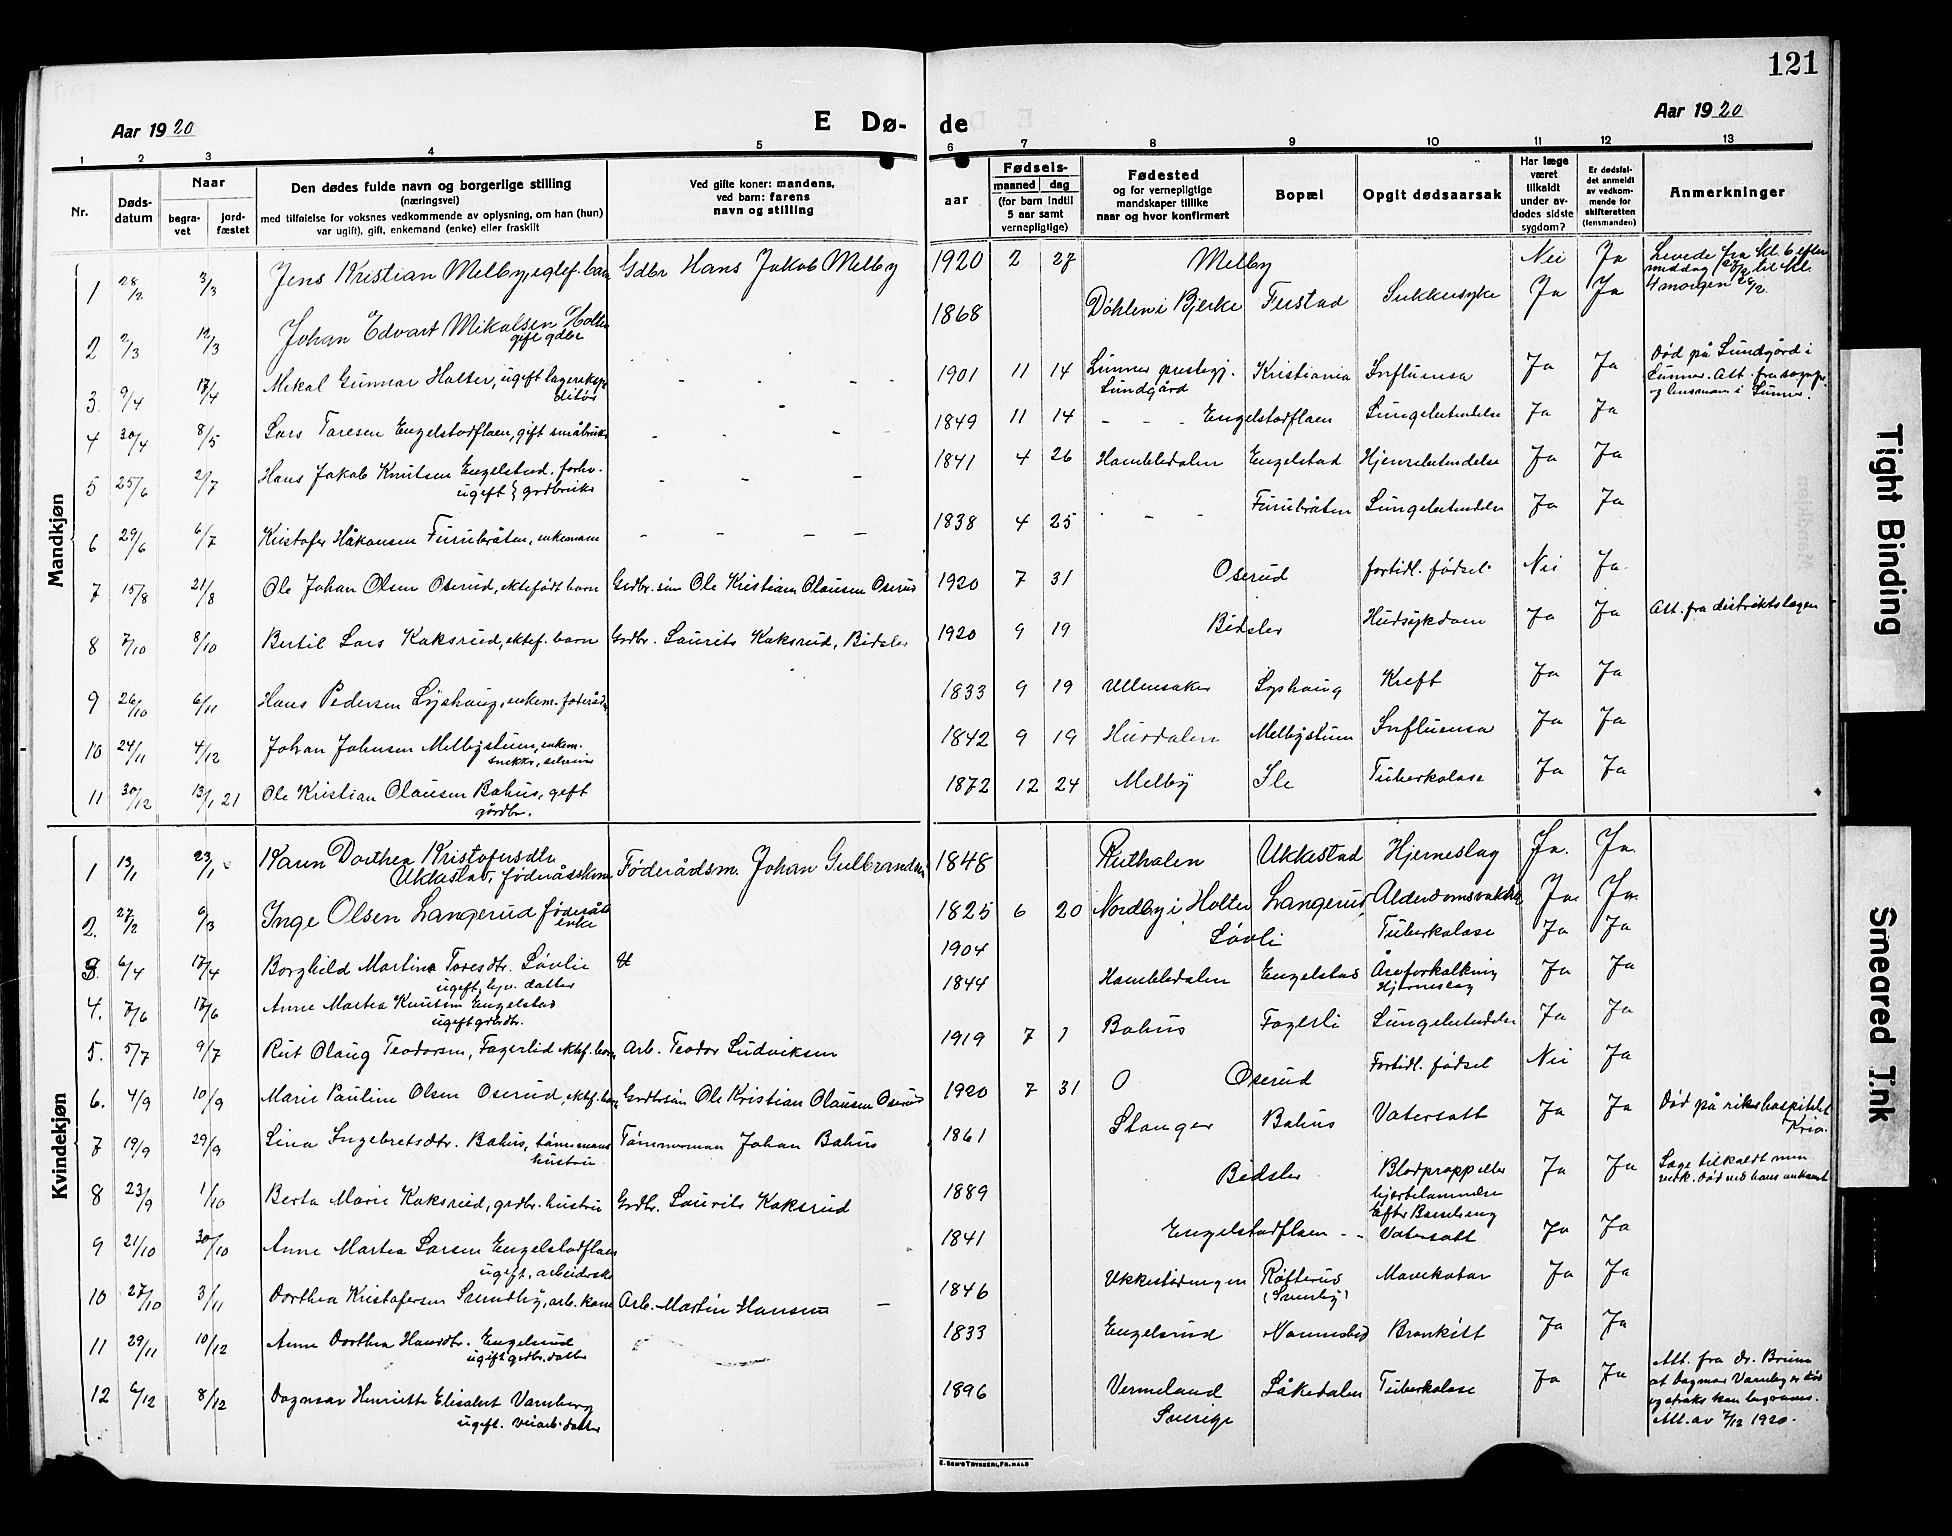 121
Aar 1920
E Dø-
de
Aar 1920
1 2 3 4 5 6 7 8 9 10 11 12 13
Nr.
Døds-
datum
Naar
begra-
vet
jord-
fæstet
Den dødes fulde navn og borgerlige stilling
(næringsvei)
med tilføielse for voksnes vedkommende av oplysning, om han (hun)
var ugift), gift, enkemand (enke) eller fraskilt
Ved gifte koner: mandens,
ved barn: farens
navn og stilling
aar
Fødsels-
maaned dag
(for barn indtil
5 aar samt
vernepligtige)
Fødested
og for vernepligtige
mandskaper tillike
naar og hvor konfirmert
Bopæl
Opgit dødsaarsak
Har læge
været
tilkaldt
under av-
dødes sidste
sygdom?
Er dødsfal-
det anmeldt
av vedkom-
mende for
skifteretten
(lensmanden)
Anmerkninger
Mandkjøn
1 28/2 3/3 Jens Kristian Melby, egtef. barn Gdbr Hans Jakob Melby 1920 2 27 Melby Nei Ja Levede fra kl. 6 efter
middag 27/2 til kl.
4 morgen 28/2.
2 2/3 12/3 Johan Edvart Mikalsen Holter
gift gdbr 1868 Døhlen i Bjerke Feistad Sukkersyke Ja Ja
3. 9/4 17/4 Mikal Gunnar Holter, ugift lagerekspe
ditør 1901 11 14 Lunner prestegj.
Lundgård Kristiania Influensa Ja Ja Død på Lundgård i
Lunner. Att. fra
lensmann i Lunner.
4 30/4 8/5 Lars Toresen Engelstadflaen, gift småbruker 1849 11 14 - - - Engelstadflaen Lungebetendelse Ja Ja
5 25/6 2/7 Hans Jakob Knutsen Engelstad. forhv.
ugift grdbruker 1841 4 26 Hambledalen Engelstad Hjernebetendelse Ja Ja
6 29/6 6/7 Kristofer Håkonsen Furubråten, enkemann 1838 4 25 - - - Furubråten Lungebetendelse Ja Ja
7 15/8 21/8 Ole Johan Olsen Oserud, ektefødt barn Grdbr. søn Ole Kristian Olausen Oserud 1920 7 31 Oserud fortidl. fødsel Nei Ja.
8 7/10 8/10 Bertil Lars Koksrud, ektef. barn Grdbr. Laurits Koksrud, Bidsler 1920 9 19 Bidsler Hudsykdom Ja Ja Att. fra distriktslægen
9 26/10 6/11 Hans Pedersen Lyshaug, enkem. føderåds 1833 9 19 Ullensaker Lyshaug Kreft Ja Ja
10 24/11 4/12 Johan Johnsen Melbystuen, enkem.
snekker 1842 9 19 Hurdalen Melbystuen Influensa Ja Ja
11 30/12 13/1 21 Ole Kristian Olausen Bahus, gift
gårdbr. 1872 12 24 Melby Ile Tuberkolose Ja Ja
Kvindekjøn
1 13/1 23/1 Karen Dorthea Kristofersdtr
Ukkestad, føderådskone Føderådsm. Johan Gulbrandsen 1848 Ruthalen Ukkestad Hjerneslag Ja. Ja.
2. 27/2 9/3 Inge Olsen Langerud føderåds
enke 1825 6 20 Nordby i Holter Langerud, Alderdomsvakhet Ja Ja
3. 6/4 17/4 Borghild Martina Toresdtr. Løvlie
ugift, hjv. datter 1904 Løvli Tuberkolose Ja Ja
4. 7/6 17/6 Anne Martea Knutsen Engelstad
ugift grdbrdtr. 1844 Hambledalen Engelstad Åreforkalkning
Hjerneslag Ja Ja
5. 5/7 9/7 Rut Olaug Teodorsen, Fagerlid ektef. barn Arb. Teodor Ludviksen 1919 7 1 Bahus Fagerli Lungebetendelse Ja Ja
6. 4/9 10/9 Marie Pauline Olsen Oserud, ektef. barn Grdbrsøn Ole Kristian Olausen Oserud 1920 7 31 O Oserud Fortidl. fødsel Nei Ja
7 19/9 29/9 Lina Ingebretsdtr. Bahus, tømmermans
hustru Tømmerman Johan Bahus 1861 Stanger Bahus Vatersott Ja Ja Død på rikshospitalet
Kria.
8 23/9 1/10 Berta Marie Koksrud, grdbr. hustru Grdbr. Laurits Koksrud 1889 Bidsler Blodpropp eller
hjertelammelse
Efter Barselseng Ja Ja Læge tilkaldt men
vedk. død ved hans ankomst
9 21/10 30/10 Anne Martea Larsen Engelstadflaen
ugift, arbeiderske 1841 Engelstadflaen - - Vatersott Ja Ja
10 27/10 3/11 Dorthea Kristofersen Sundby, arb. kone Arb. Martin Hansen 1846 Ukkestadengen Røtterud
(Sundby) Mavekatar Ja Ja
11 29/11 10/12 Anne Dorthea Hansdtr. Engelsrud
ugift grdbr. datter 1833 Engelsrud Nannestad Bronkitt Ja Ja
12 6/12 8/12 Dagmar Henriette Elisabet Varnberg
ugift. veiarb. datter 1896 Vermeland
Sverige Låkedalen Tuberkolose Ja Ja Att. fra dr. Bruun
at Dagmar Varnberg er død
og straks kan begraves.
Att. av 7/12 1920.
E. SEM'S TRYKKERI, FR.HALD
Tight Binding
Smeared Ink